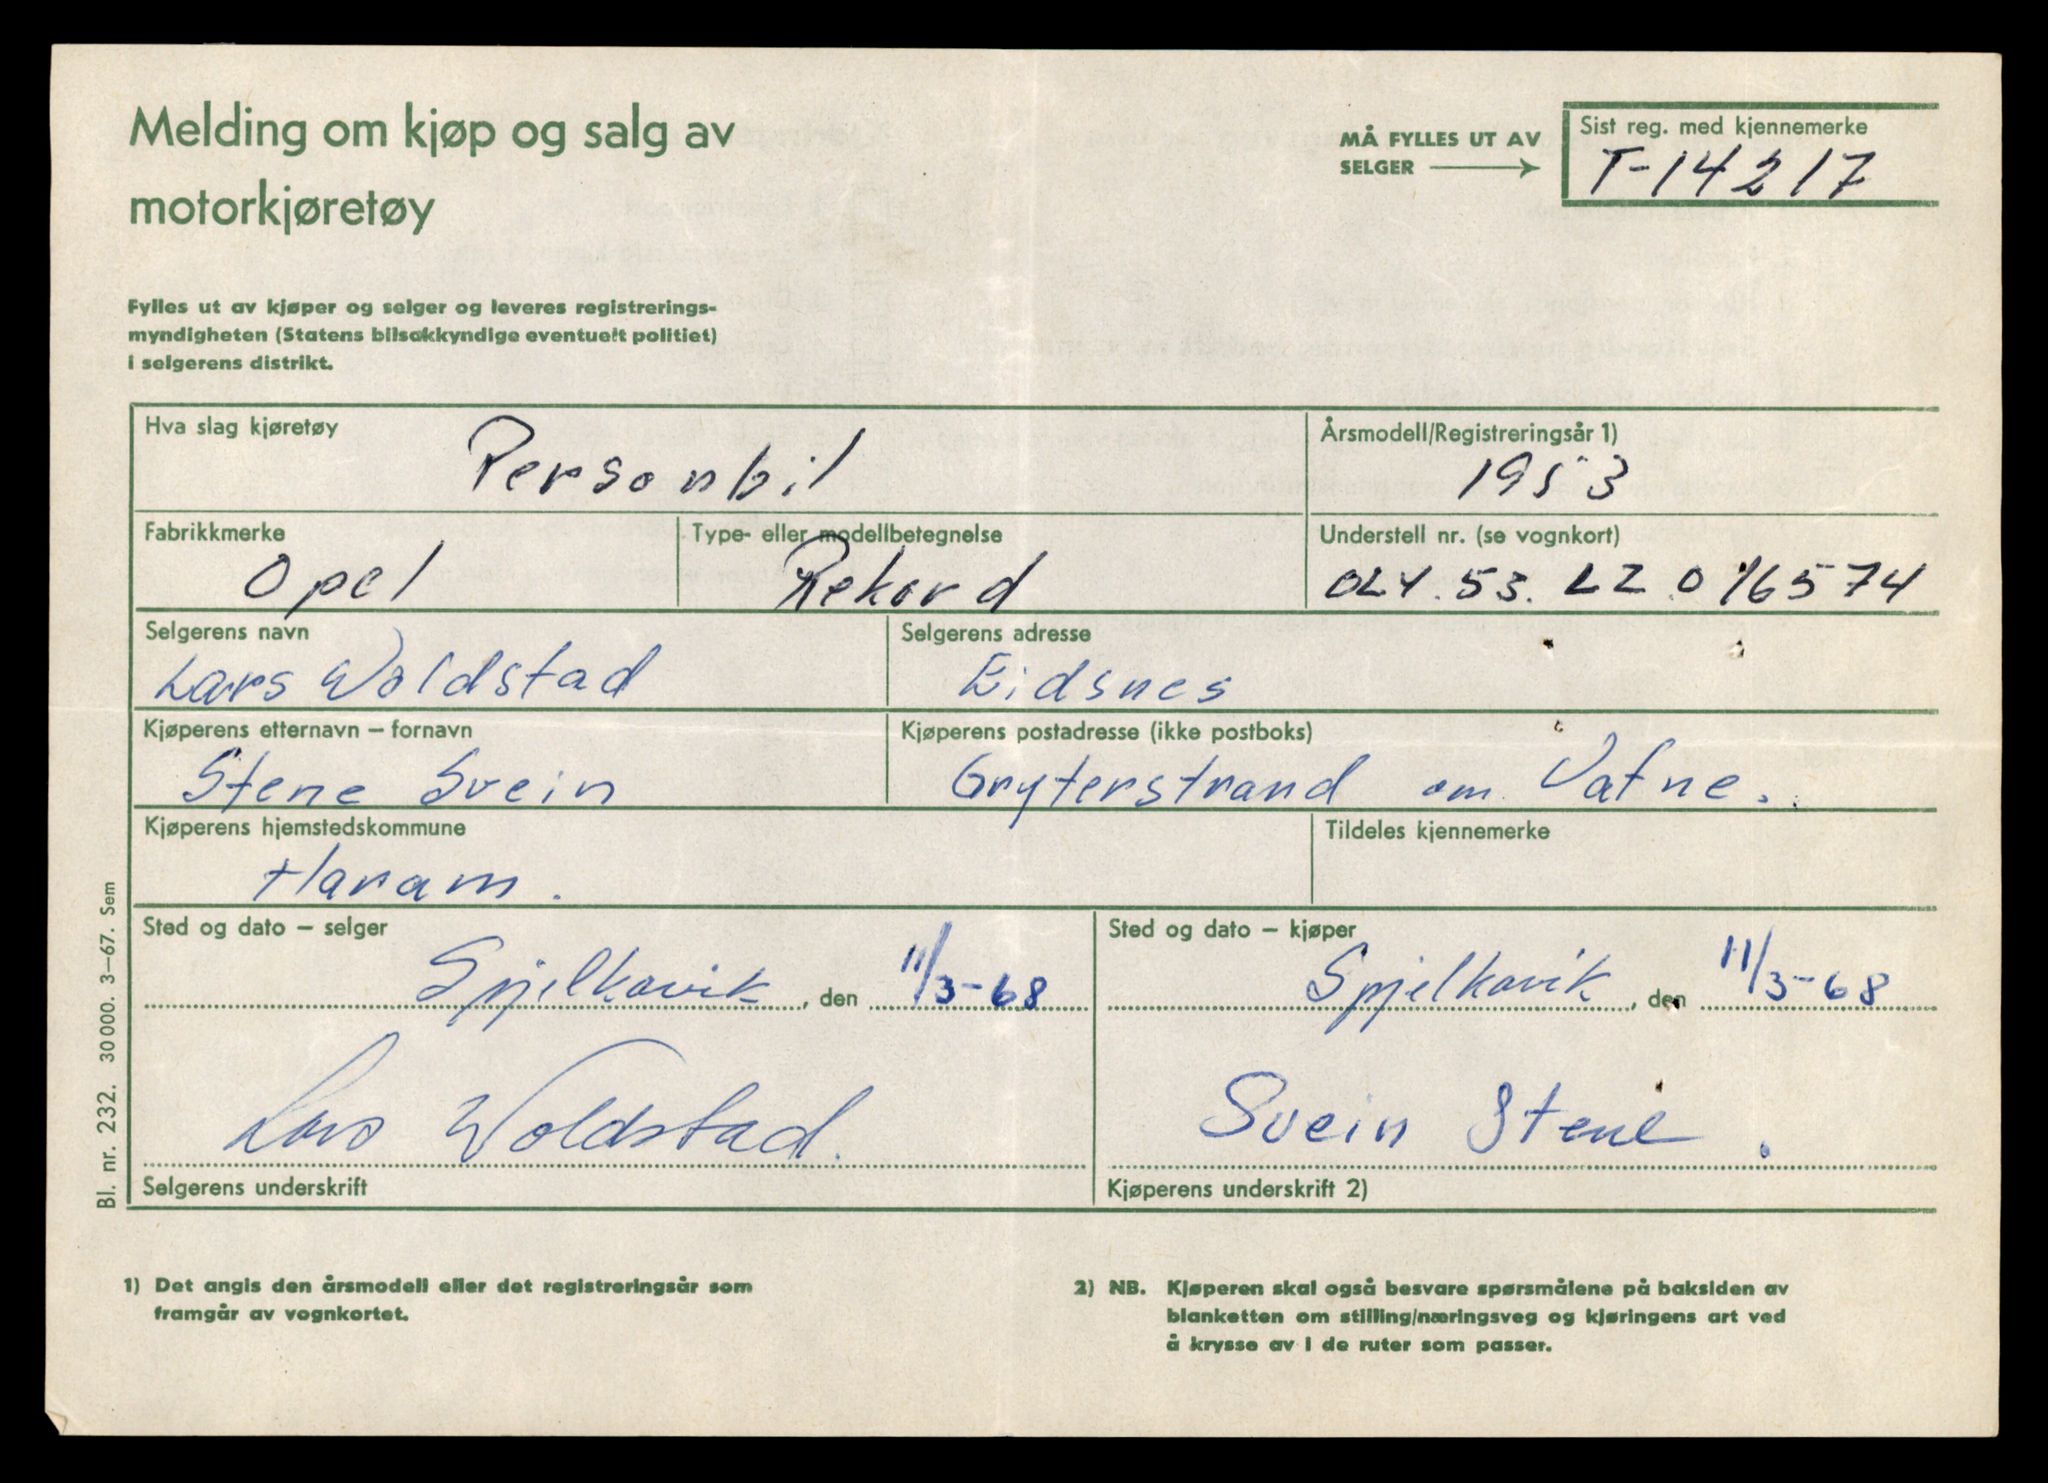 Melding om kjøp og salg av
motorkjøretøy
MÅ FYLLES UT AV
SELGER
Sist reg. med kjennemerke
T-14217
Fylles ut av kjøper og selger og leveres registrerings-
myndigheten (Statens bilsakkyndige eventuelt politiet)
i selgerens distrikt.
Hva slag kjøretøy
Personbil
Årsmodell/Registreringsår 1)
1953
Fabrikkmerke
Opel
Type- eller modellbetegnelse
Rekord
Understell nr. (se vognkort)
53. LZ 016574
Selgerens navn
Lars Woldstad
Selgerens adresse
Eidsnes
Kjøperens etternavn – fornavn
Stene Svein
Kjøperens postadresse (ikke postboks)
Gryterstrand om Vatne.
Kjøperens hjemstedskommune
Haram.
Tildeles kjennemerke
Sted og dato – selger
Spjelkavik, den 11/3-68
Sted og dato – kjøper
Spjelkavik, den 11/3-68
Lars Woldstad.
Selgerens underskrift
Svein Stene.
Kjøperens underskrift 2)
Bl. nr. 232. 30 000. 3–67. Sem
1) Det angis den årsmodell eller det registreringsår som
framgår av vognkortet.
2) NB. Kjøperen skal også besvare spørsmålene på baksiden av
blanketten om stilling/næringsveg og kjøringens art ved
å krysse av i de ruter som passer.